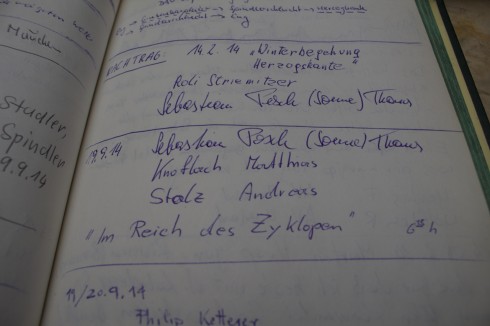 Münche
Studler,
Spindler
9.9.14
NACHTRAG: 14.2.14 "Winterbegehung
Herzogskante"
Roli Striemitzer
Sebastian Posch (Sonne) Thomas
19.9.14 Sebastian Posch (Sonne) Thomas
Knoflach Matthias
Stolz Andreas
"Im Reich des Zyklopen" 6 h
19/20.9.14
Philip